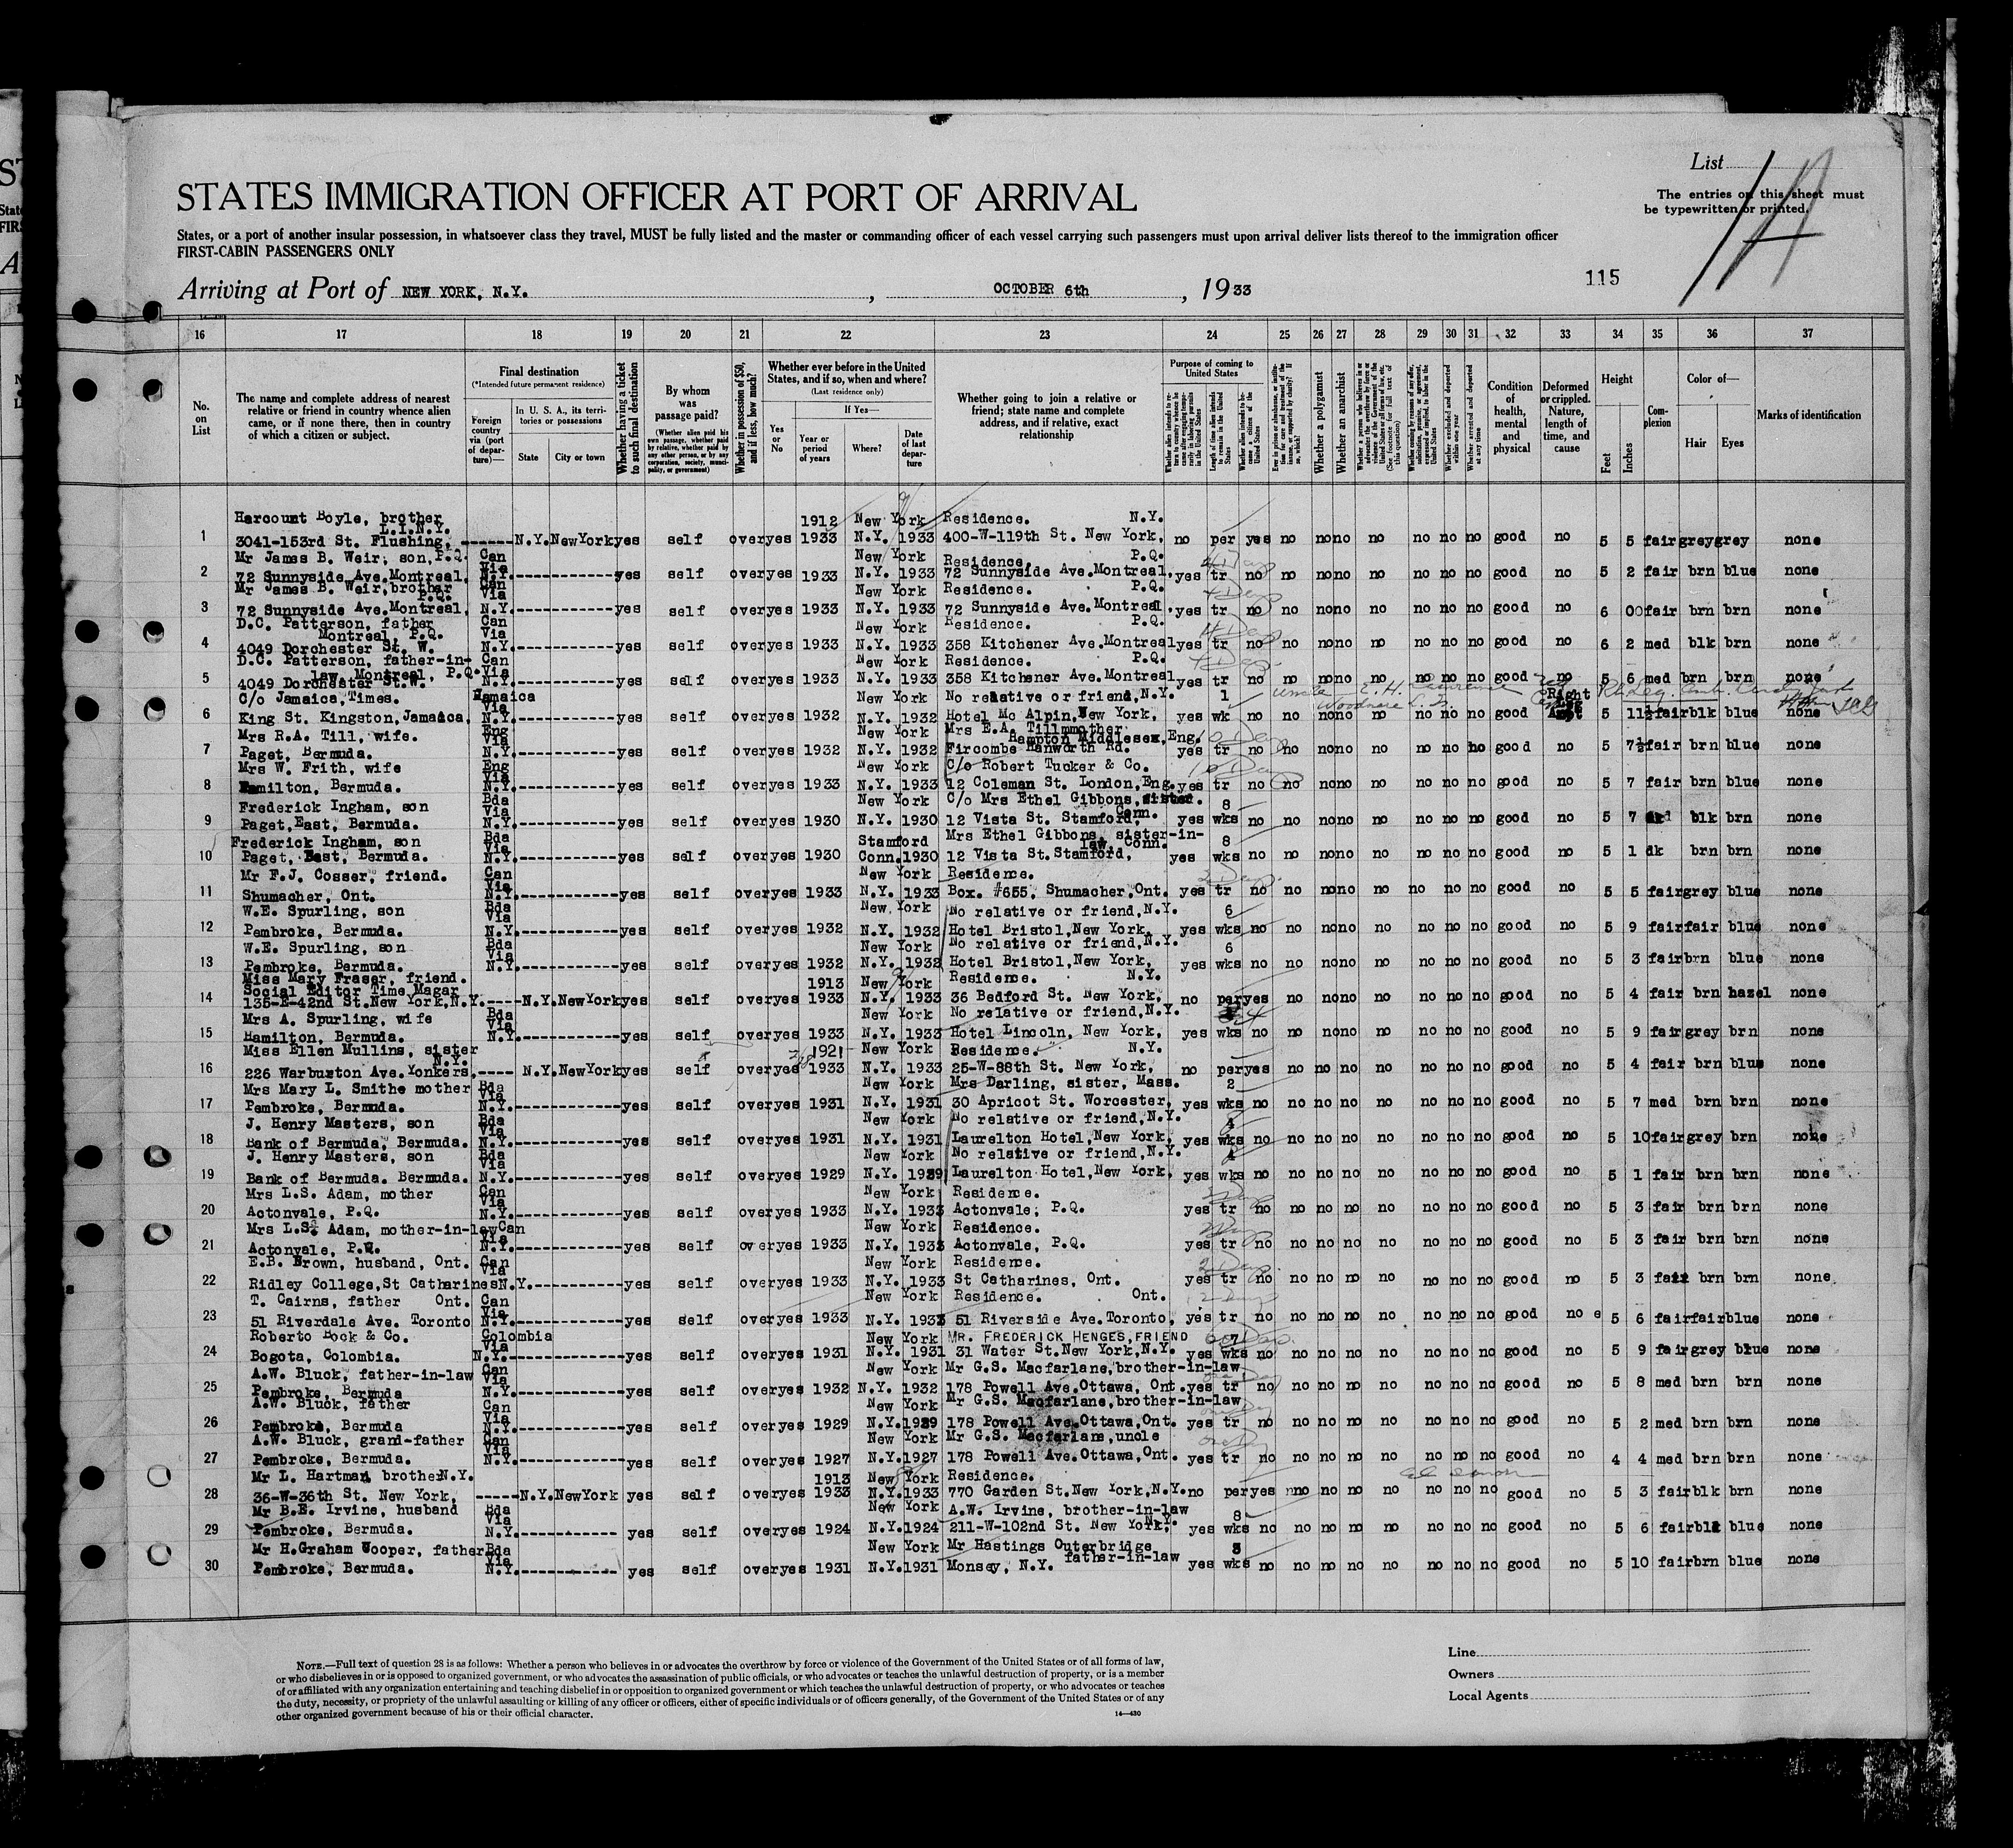 List
STATES IMMIGRATION OFFICER AT PORT OF ARRIVAL
The entries on this sheet must
be typewritten or printed.
States, or a port of another insular possession, in whatsoever class they travel, MUST be fully listed and the master or commanding officer of each vessel carrying such passengers must upon arrival deliver lists thereof to the immigration officer
FIRST-CABIN PASSENGERS ONLY
115
Arriving at Port of NEW YORK, N.Y. , OCTOBER 6th , 1933
16 17 18 19 20 21 22 23 24 25 26 27 28 29 30 31 32 33 34 35 36 37
No. on List
The name and complete address of nearest relative or friend in country whence alien came, or if none there, then in country of which a citizen or subject.
Final destination
(*Intended future permanent residence)
Foreign country via (port of departure)—
In U. S. A., its territories or possessions
State City or town
Whether having a ticket to such final destination
By whom was passage paid?
(Whether alien paid his own passage, whether paid by relative, whether paid by any other person, or by any corporation, society, municipality, or government)
Whether in possession of $50, and if less, how much?
Whether ever before in the United States, and if so, when and where?
(Last residence only)
Yes or No
If Yes—
Year or period of years Where? Date of last departure
Whether going to join a relative or friend; state name and complete address, and if relative, exact relationship
Purpose of coming to United States
Length of time alien intends to remain in the United States
Whether a polygamist
Whether an anarchist
Whether arrested and deported at any time
Condition of health, mental and physical
Deformed or crippled. Nature, length of time, and cause
Height
Feet Inches
Complexion
Color of—
Hair Eyes
Marks of identification
Harcount Boyle, brother 1912 New York Residence. N.Y.
L.I.N.Y.
1 3041-153rd St. Flushing, ------- N.Y. New York yes self over yes 1933 N.Y. 1933 400-W-119th St. New York, no per yes no no no no no no no good no 5 5 fair grey grey none
Mr James B. Weir, son, P.Q. Can Via New York Residence. P.Q.
2 72 Sunnyside Ave. Montreal, N.Y. ------------- yes self over yes 1933 N.Y. 1933 72 Sunnyside Ave. Montreal, yes tr no no no no no no no no good no 5 2 fair brn blue none
Mr James B. Weir, brother Can Via New York Residence. P.Q.
P.Q.
3 72 Sunnyside Ave. Montreal, N.Y. ------------- yes self over yes 1933 N.Y. 1933 72 Sunnyside Ave. Montreal, yes tr no no no no no no no no good no 6 00 fair brn brn none
D.C. Patterson, father Can Via New York Residence. P.Q.
Montreal, P.Q.
4 4049 Dorchester St. W. N.Y. ------------- yes self over yes 1933 N.Y. 1933 358 Kitchener Ave. Montreal yes tr no no no no no no no no good no 6 2 med blk brn none
D.C. Patterson, father-in- Can Via New York Residence. P.Q.
law, Montreal, P.Q.
5 4049 Dorchester St. W. N.Y. ------------- yes self over yes 1933 N.Y. 1933 358 Kitchener Ave. Montreal yes tr no no no no no no no no good no 5 6 med brn brn none
C/o Jamaica, Times. Jamaica Via New York No relative or friend, N.Y. 1 uncle E. H. Right
6 King St. Kingston, Jamaica, N.Y. ------------- yes self over yes 1932 N.Y. 1932 Hotel Mc Alpin, New York, yes wk no no no no no no no no good 5 11½ fair blk blue none
Mrs R.A. Till, wife. Eng Via New York Mrs E.A. Till, mother
Hampton Middlesex, Eng.
7 Paget, Bermuda. N.Y. ------------- yes self over yes 1932 N.Y. 1932 Fircombe Hanworth Rd. yes tr no no no no no no no no good no 5 7½ fair brn blue none
Mrs W. Frith, wife Eng Via New York C/o Robert Tucker & Co. 10 Days
8 Hamilton, Bermuda. N.Y. ------------- yes self over yes 1933 N.Y. 1933 12 Coleman St. London, Eng. yes tr no no no no no no no no good no 5 7 fair brn blue none
Frederick Ingham, son Bda Via New York C/o Mrs Ethel Gibbons, sister. 8
Conn.
9 Paget, East, Bermuda. N.Y. ------------- yes self over yes 1930 N.Y. 1930 12 Vista St. Stamford, yes wks no no no no no no no no good no 5 7 blk brn none
Frederick Ingham, son Bda Via Stamford Mrs Ethel Gibbons, sister-in- 8
law, Conn.
10 Paget, East, Bermuda. N.Y. ------------- yes self over yes 1930 Conn. 1930 12 Vista St. Stamford, yes wks no no no no no no no no good no 5 1 dk brn brn none
Mr F.J. Cosser, friend. Can Via New York Residence. 2 Days.
11 Shumacher, Ont. N.Y. ------------- yes self over yes 1933 N.Y. 1933 Box. #655, Shumacher, Ont. yes tr no no no no no no no no good no 5 5 fair grey blue none
W.E. Spurling, son Bda Via New York No relative or friend, N.Y. 6
12 Pembroke, Bermuda. N.Y. ------------- yes self over yes 1932 N.Y. 1932 Hotel Bristol, New York, yes wks no no no no no no no no good no 5 9 fair fair blue none
W.E. Spurling, son Bda Via New York No relative or friend, N.Y. 6
13 Pembroke, Bermuda. N.Y. ------------- yes self over yes 1932 N.Y. 1932 Hotel Bristol, New York, yes wks no no no no no no no no good no 5 3 fair brn blue none
Miss Mary Fraser, friend. 1913 New York Residence. N.Y.
Social Editor Time Magaz
14 135-E-42nd St. New York, N.Y. ---- N.Y. New York yes self over yes 1933 N.Y. 1933 36 Bedford St. New York, no per yes no no no no no no no good no 5 4 fair brn hazel none
Mrs A. Spurling, wife Bda Via New York No relative or friend, N.Y. 4
15 Hamilton, Bermuda. N.Y. ------------- yes self over yes 1933 N.Y. 1933 Hotel Lincoln, New York, yes wks no no no no no no no no good no 5 9 fair grey brn none
Miss Ellen Mullins, sister 1921 New York Residence. N.Y.
N.Y.
16 226 Warburton Ave. Yonkers, ---- N.Y. New York yes self over yes 1933 N.Y. 1933 25-W-88th St. New York, no per yes no no no no no no no good no 5 4 fair brn blue none
Mrs Mary L. Smithe mother Bda Via New York Mrs Darling, sister, Mass. 2
17 Pembroke, Bermuda. N.Y. ------------- yes self over yes 1931 N.Y. 1931 30 Apricot St. Worcester, yes wks no no no no no no no no good no 5 7 med brn brn none
J. Henry Masters, son Bda Via New York No relative or friend, N.Y. 4
18 Bank of Bermuda, Bermuda. N.Y. ------------- yes self over yes 1931 N.Y. 1931 Laurelton Hotel, New York, yes wks no no no no no no no no good no 5 10 fair grey brn none
J. Henry Masters, son Bda Via New York No relative or friend, N.Y. 4
19 Bank of Bermuda. Bermuda. N.Y. ------------- yes self over yes 1929 N.Y. 1929 Laurelton Hotel, New York, yes wks no no no no no no no no good no 5 1 fair brn brn none
Mrs L.S. Adam, mother Can Via New York Residence.
20 Actonvale, P.Q. N.Y. ------------- yes self over yes 1933 N.Y. 1933 Actonvale, P.Q. yes tr no no no no no no no no good no 5 3 fair brn brn none
Mrs L.S. Adam, mother-in-law Can Via New York Residence.
21 Actonvale, P.Q. N.Y. ------------- yes self over yes 1933 N.Y. 1933 Actonvale, P.Q. yes tr no no no no no no no no good no 5 3 fair brn brn none
E.B. Brown, husband, Ont. Can Via New York Residence. 2 Days.
22 Ridley College, St Catharines N.Y. ------------- yes self over yes 1933 N.Y. 1933 St Catharines, Ont. yes tr no no no no no no no no good no 5 3 fair brn brn none.
T. Cairns, father Ont. Can Via New York Residence. Ont. 2 Days
23 51 Riverdale Ave. Toronto N.Y. ------------- yes self over yes 1933 N.Y. 1933 51 Riverside Ave. Toronto, yes tr no no no no no no no no good no e 5 6 fair fair blue none
Roberto Bock & Co. Colombia Via New York MR. FREDERICK HENGES, FRIEND
24 Bogota, Colombia. N.Y. ------------- yes self over yes 1931 N.Y. 1931 31 Water St. New York, N.Y. yes wks no no no no no no no no good no 5 9 fair grey blue none
A.W. Bluck, father-in-law Can Via New York Mr G.S. Macfarlane, brother-in-law
25 Pembroke, Bermuda N.Y. ------------- yes self over yes 1932 N.Y. 1932 178 Powell Ave. Ottawa, Ont. yes tr no no no no no no no no good no 5 8 med brn brn none
A.W. Bluck, father Can Via New York Mr G.S. Macfarlane, brother-in-law
26 Pembroke, Bermuda N.Y. ------------- yes self over yes 1929 N.Y. 1929 178 Powell Ave. Ottawa, Ont. yes tr no no no no no no no no good no 5 2 med brn brn none
A.W. Bluck, grand-father Can Via New York Mr G.S. Macfarlane, uncle
27 Pembroke, Bermuda. N.Y. ------------- yes self over yes 1927 N.Y. 1927 178 Powell Ave. Ottawa, Ont. yes tr no no no no no no no no good no 4 4 med brn brn none
Mr L. Hartman, brother N.Y. 1913 New York Residence.
28 36-W-36th St. New York, ----- N.Y. New York yes self over yes 1933 N.Y. 1933 770 Garden St. New York, N.Y. no per yes no no no no no no no good no 5 3 fair blk brn none
Mr B.E. Irvine, husband Bda Via New York A.W. Irvine, brother-in-law 8
N.Y.
29 Pembroke, Bermuda. N.Y. ------------- yes self over yes 1924 N.Y. 1924 211-W-102nd St. New York, yes wks no no no no no no no no good no 5 6 fair blk blue none
Mr H. Graham Gooper, father Bda Via New York Mr Hastings Outerbridge 3
father-in-law
30 Pembroke, Bermuda. N.Y. ------------- yes self over yes 1931 N.Y. 1931 Monsey, N.Y. yes wks no no no no no no no no good no 5 10 fair brn blue none
NOTE.—Full text of question 28 is as follows: Whether a person who believes in or advocates the overthrow by force or violence of the Government of the United States or of all forms of law,
or who disbelieves in or is opposed to organized government, or who advocates the assassination of public officials, or who advocates or teaches the unlawful destruction of property, or is a member
of or affiliated with any organization entertaining and teaching disbelief in or opposition to organized government or which teaches the unlawful destruction of property, or who advocates or teaches
the duty, necessity, or propriety of the unlawful assaulting or killing of any officer or officers, either of specific individuals or of officers generally, of the Government of the United States or of any
other organized government because of his or their official character.
14—430
Line
Owners
Local Agents